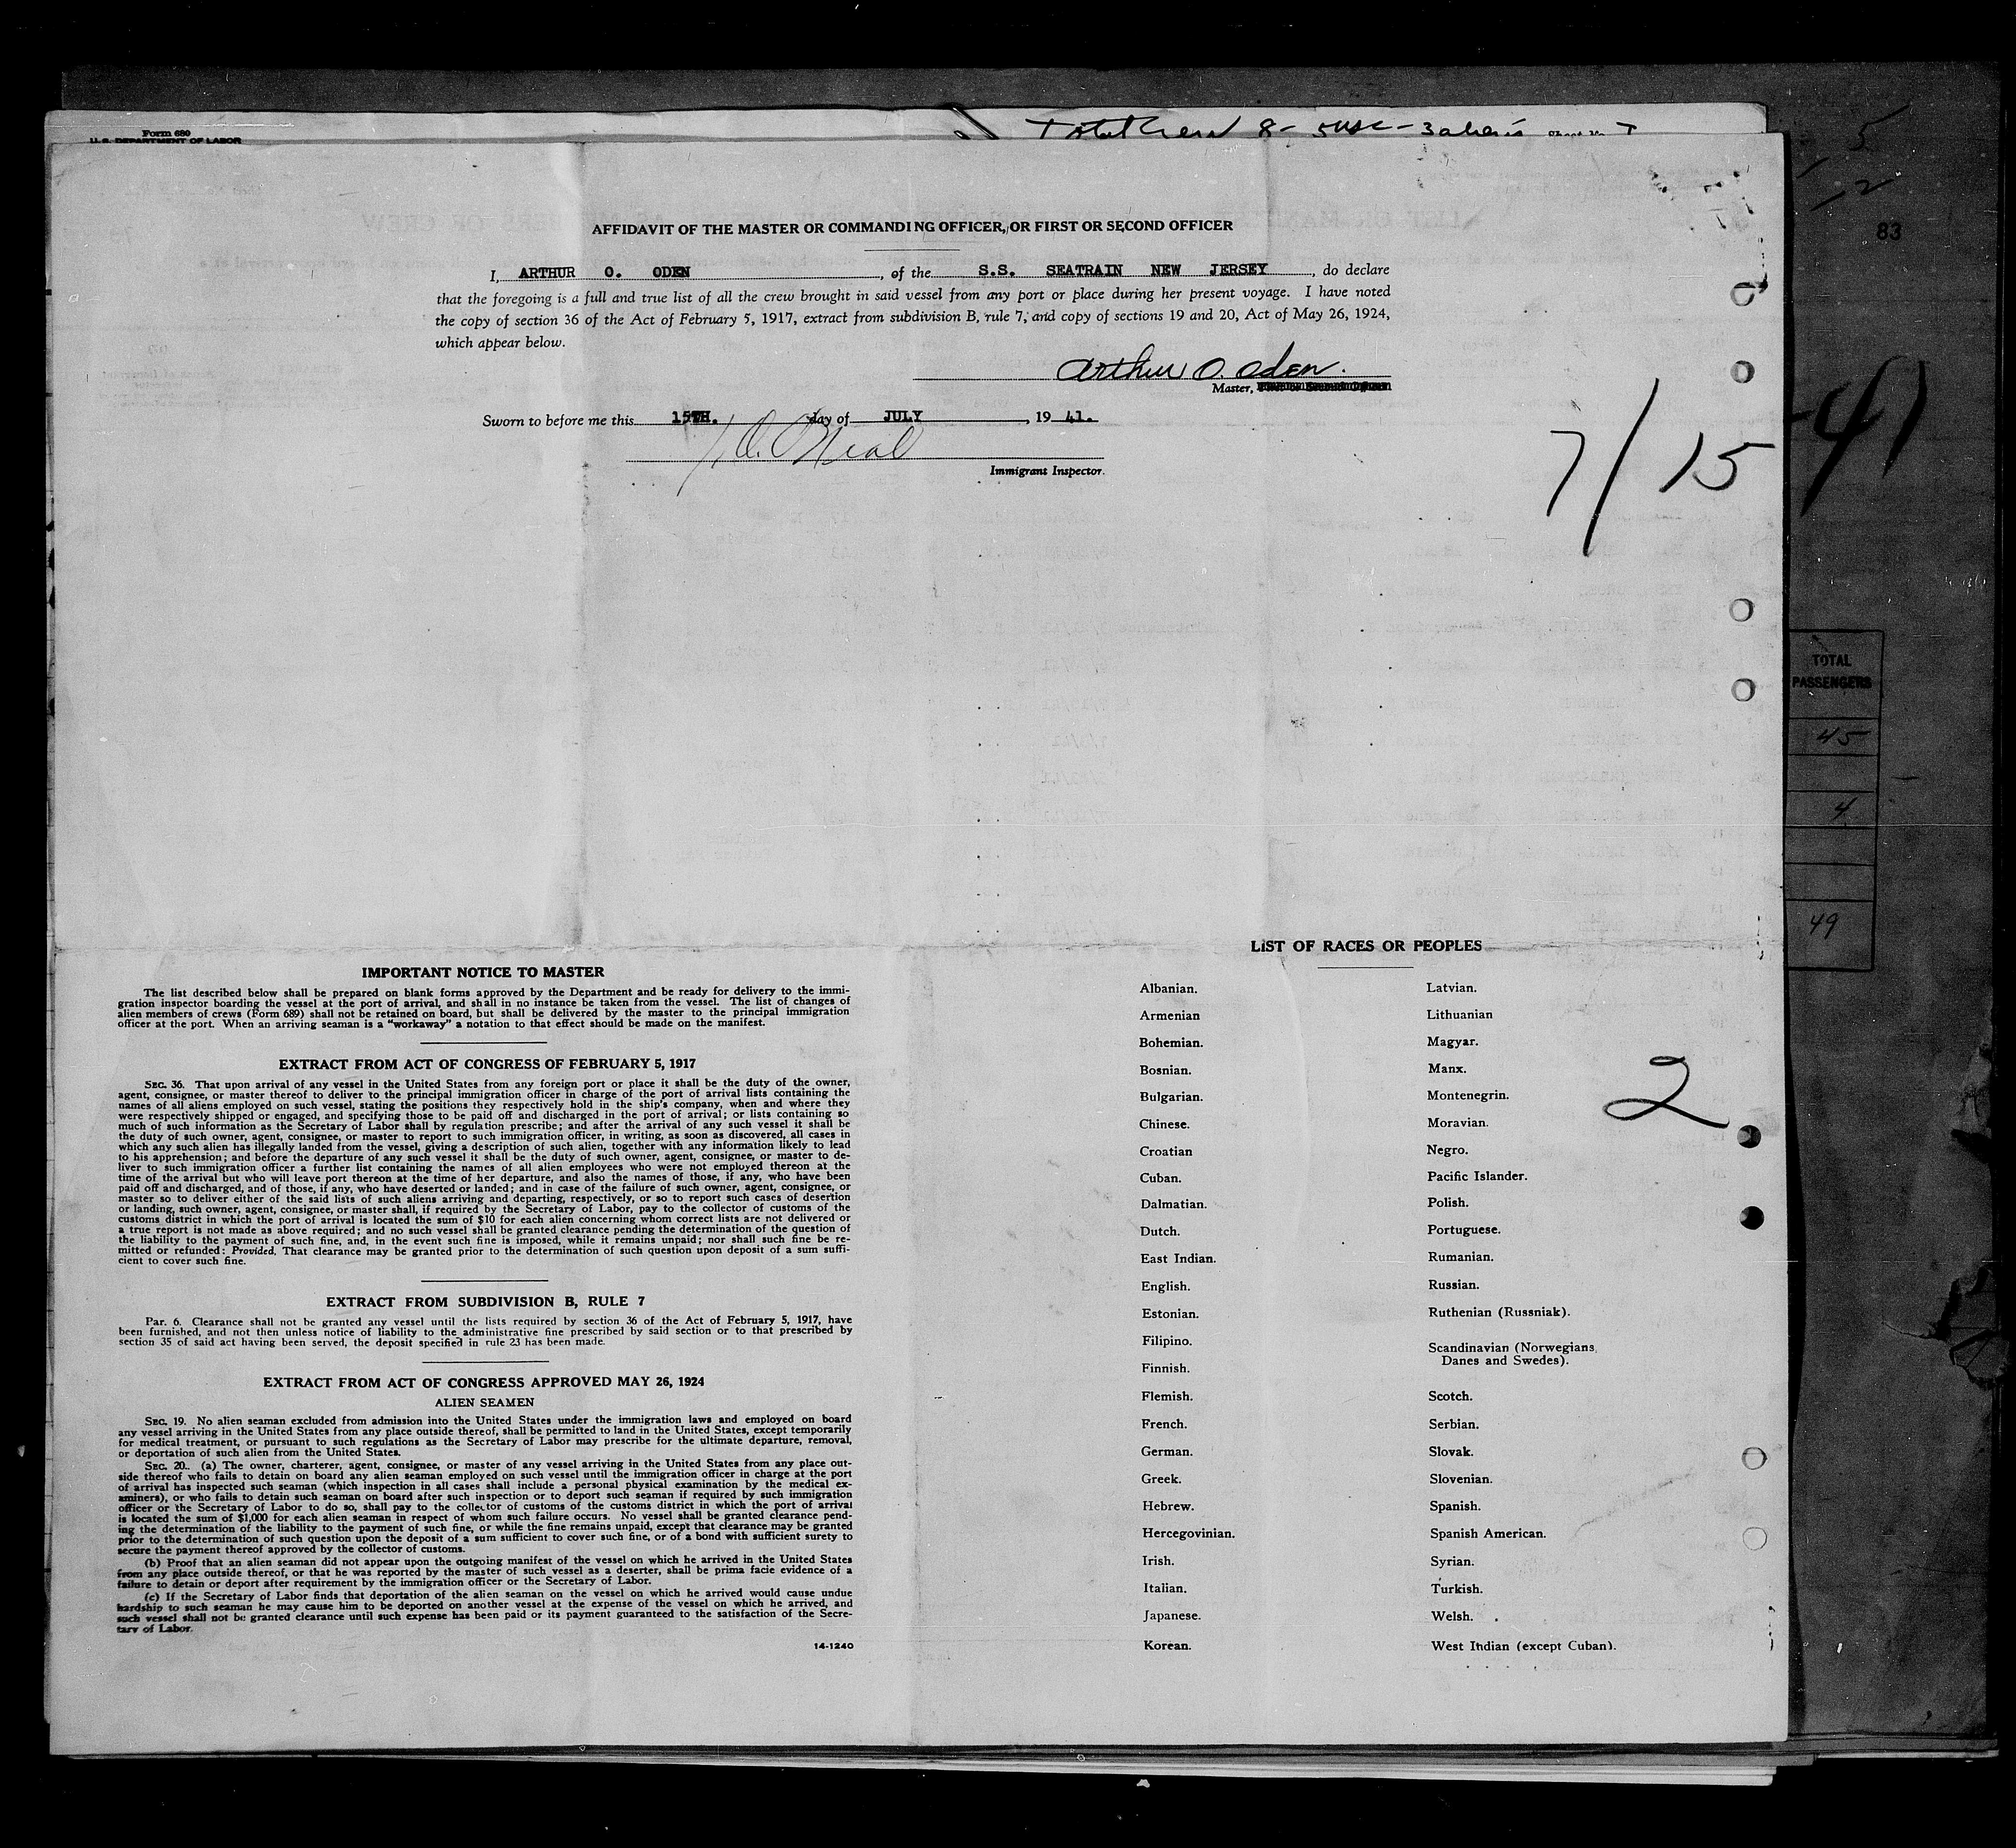 Form 689
U. S. DEPARTMENT OF LABOR
Total Crew 8 - 5 USC - 3 aliens
5
12
83
AFFIDAVIT OF THE MASTER OR COMMANDING OFFICER, OR FIRST OR SECOND OFFICER
I, ARTHUR O. ODEN, of the S.S. SEATRAIN NEW JERSEY, do declare
that the foregoing is a full and true list of all the crew brought in said vessel from any port or place during her present voyage. I have noted
the copy of section 36 of the Act of February 5, 1917, extract from subdivision B, rule 7, and copy of sections 19 and 20, Act of May 26, 1924,
which appear below.
Arthur O. Oden.
Master,
Sworn to before me this 15TH. day of JULY, 19 41.
Immigrant Inspector.
7/15
-41
TOTAL
PASSENGERS
45
4
49
IMPORTANT NOTICE TO MASTER
The list described below shall be prepared on blank forms approved by the Department and be ready for delivery to the immi-
gration inspector boarding the vessel at the port of arrival, and shall in no instance be taken from the vessel. The list of changes of
alien members of crews (Form 689) shall not be retained on board, but shall be delivered by the master to the principal immigration
officer at the port. When an arriving seaman is a "workaway" a notation to that effect should be made on the manifest.
EXTRACT FROM ACT OF CONGRESS OF FEBRUARY 5, 1917
SEC. 36. That upon arrival of any vessel in the United States from any foreign port or place it shall be the duty of the owner,
agent, consignee, or master thereof to deliver to the principal immigration officer in charge of the port of arrival lists containing the
names of all aliens employed on such vessel, stating the positions they respectively hold in the ship's company, when and where they
were respectively shipped or engaged, and specifying those to be paid off and discharged in the port of arrival; or lists containing so
much of such information as the Secretary of Labor shall by regulation prescribe; and after the arrival of any such vessel it shall be
the duty of such owner, agent, consignee, or master to report to such immigration officer, in writing, as soon as discovered, all cases in
which any such alien has illegally landed from the vessel, giving a description of such alien, together with any information likely to lead
to his apprehension; and before the departure of any such vessel it shall be the duty of such owner, agent, consignee, or master to de-
liver to such immigration officer a further list containing the names of all alien employees who were not employed thereon at the
time of the arrival but who will leave port thereon at the time of her departure, and also the names of those, if any, who have been
paid off and discharged, and of those, if any, who have deserted or landed; and in case of the failure of such owner, agent, consignee, or
master so to deliver either of the said lists of such aliens arriving and departing, respectively, or so to report such cases of desertion
or landing, such owner, agent, consignee, or master shall, if required by the Secretary of Labor, pay to the collector of customs of the
customs district in which the port of arrival is located the sum of $10 for each alien concerning whom correct lists are not delivered or
a true report is not made as above required; and no such vessel shall be granted clearance pending the determination of the question of
the liability to the payment of such fine, and, in the event such fine is imposed, while it remains unpaid; nor shall such fine be re-
mitted or refunded: Provided, That clearance may be granted prior to the determination of such question upon deposit of a sum suffi-
cient to cover such fine.
EXTRACT FROM SUBDIVISION B, RULE 7
Par. 6. Clearance shall not be granted any vessel until the lists required by section 36 of the Act of February 5, 1917, have
been furnished, and not then unless notice of liability to the administrative fine prescribed by said section or to that prescribed by
section 35 of said act having been served, the deposit specified in rule 23 has been made.
EXTRACT FROM ACT OF CONGRESS APPROVED MAY 26, 1924
ALIEN SEAMEN
SEC. 19. No alien seaman excluded from admission into the United States under the immigration laws and employed on board
any vessel arriving in the United States from any place outside thereof, shall be permitted to land in the United States, except temporarily
for medical treatment, or pursuant to such regulations as the Secretary of Labor may prescribe for the ultimate departure, removal,
or deportation of such alien from the United States.
SEC. 20. (a) The owner, charterer, agent, consignee, or master of any vessel arriving in the United States from any place out-
side thereof who fails to detain on board any alien seaman employed on such vessel until the immigration officer in charge at the port
of arrival has inspected such seaman (which inspection in all cases shall include a personal physical examination by the medical ex-
aminers), or who fails to detain such seaman on board after such inspection or to deport such seaman if required by such immigration
officer or the Secretary of Labor to do so, shall pay to the collector of customs of the customs district in which the port of arrival
is located the sum of $1,000 for each alien seaman in respect of whom such failure occurs. No vessel shall be granted clearance pend-
ing the determination of the liability to the payment of such fine, or while the fine remains unpaid, except that clearance may be granted
prior to the determination of such question upon the deposit of a sum sufficient to cover such fine, or of a bond with sufficient surety to
secure the payment thereof approved by the collector of customs.
(b) Proof that an alien seaman did not appear upon the outgoing manifest of the vessel on which he arrived in the United States
from any place outside thereof, or that he was reported by the master of such vessel as a deserter, shall be prima facie evidence of a
failure to detain or deport after requirement by the immigration officer or the Secretary of Labor.
(c) If the Secretary of Labor finds that deportation of the alien seaman on the vessel on which he arrived would cause undue
hardship to such seaman he may cause him to be deported on another vessel at the expense of the vessel on which he arrived, and
such vessel shall not be granted clearance until such expense has been paid or its payment guaranteed to the satisfaction of the Secre-
tary of Labor.
14-1240
LIST OF RACES OR PEOPLES
Albanian.
Armenian
Bohemian.
Bosnian.
Bulgarian.
Chinese.
Croatian
Cuban.
Dalmatian.
Dutch.
East Indian.
English.
Estonian.
Filipino.
Finnish.
Flemish.
French.
German.
Greek.
Hebrew.
Hercegovinian.
Irish.
Italian.
Japanese.
Korean.
Latvian.
Lithuanian
Magyar.
Manx.
Montenegrin.
Moravian.
Negro.
Pacific Islander.
Polish.
Portuguese.
Rumanian.
Russian.
Ruthenian (Russniak).
Scandinavian (Norwegians,
Danes and Swedes).
Scotch.
Serbian.
Slovak.
Slovenian.
Spanish.
Spanish American.
Syrian.
Turkish.
Welsh.
West Indian (except Cuban).
2